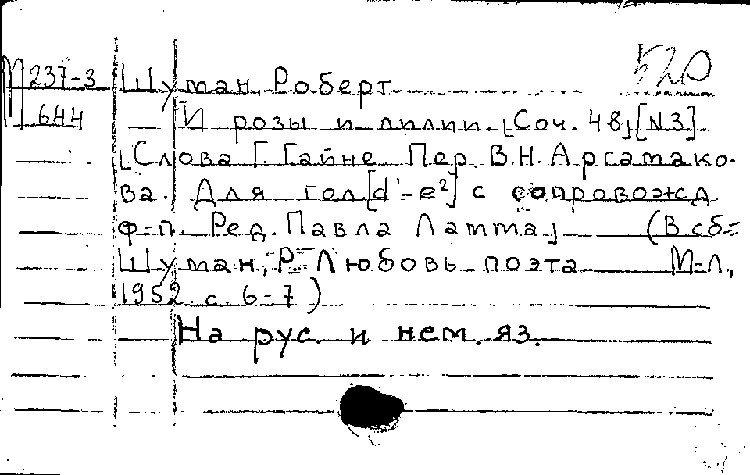 520
М 237-3 Шуман, Роберт
644 И розы и лилии. [Соч. 48] [N3].
[Слова Г. Гайне. Пер. В.Н. Аргамако-
ва. Для гол. [d¹-e²] с сопровожд.
ф-п. Ред. Павла Ламма] (В сб.:
Шуман, Р. Любовь поэта М-Л,
1952 с. 6-7)
На рус. и нем. яз.